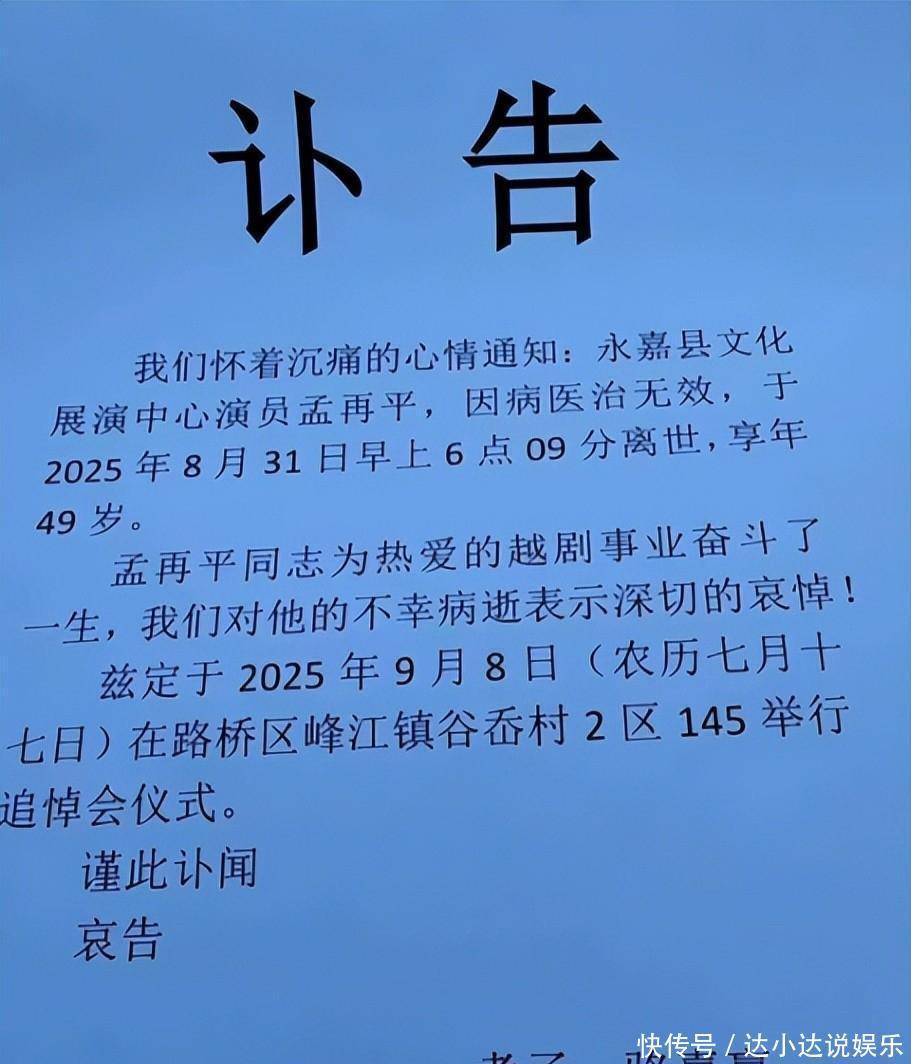 讣告
我们怀着沉痛的心情通知：永嘉县文化
展演中心演员孟再平，因病医治无效，于
2025年8月31日早上6点09分离世，享年
49岁。
孟再平同志为热爱的越剧事业奋斗了
一生，我们对他的不幸病逝表示深切的哀悼！
兹定于2025年9月8日（农历七月十
七日）在路桥区峰江镇谷岙村2区145举行
追悼会仪式。
谨此讣闻
哀告
快传号 / 达小达说娱乐